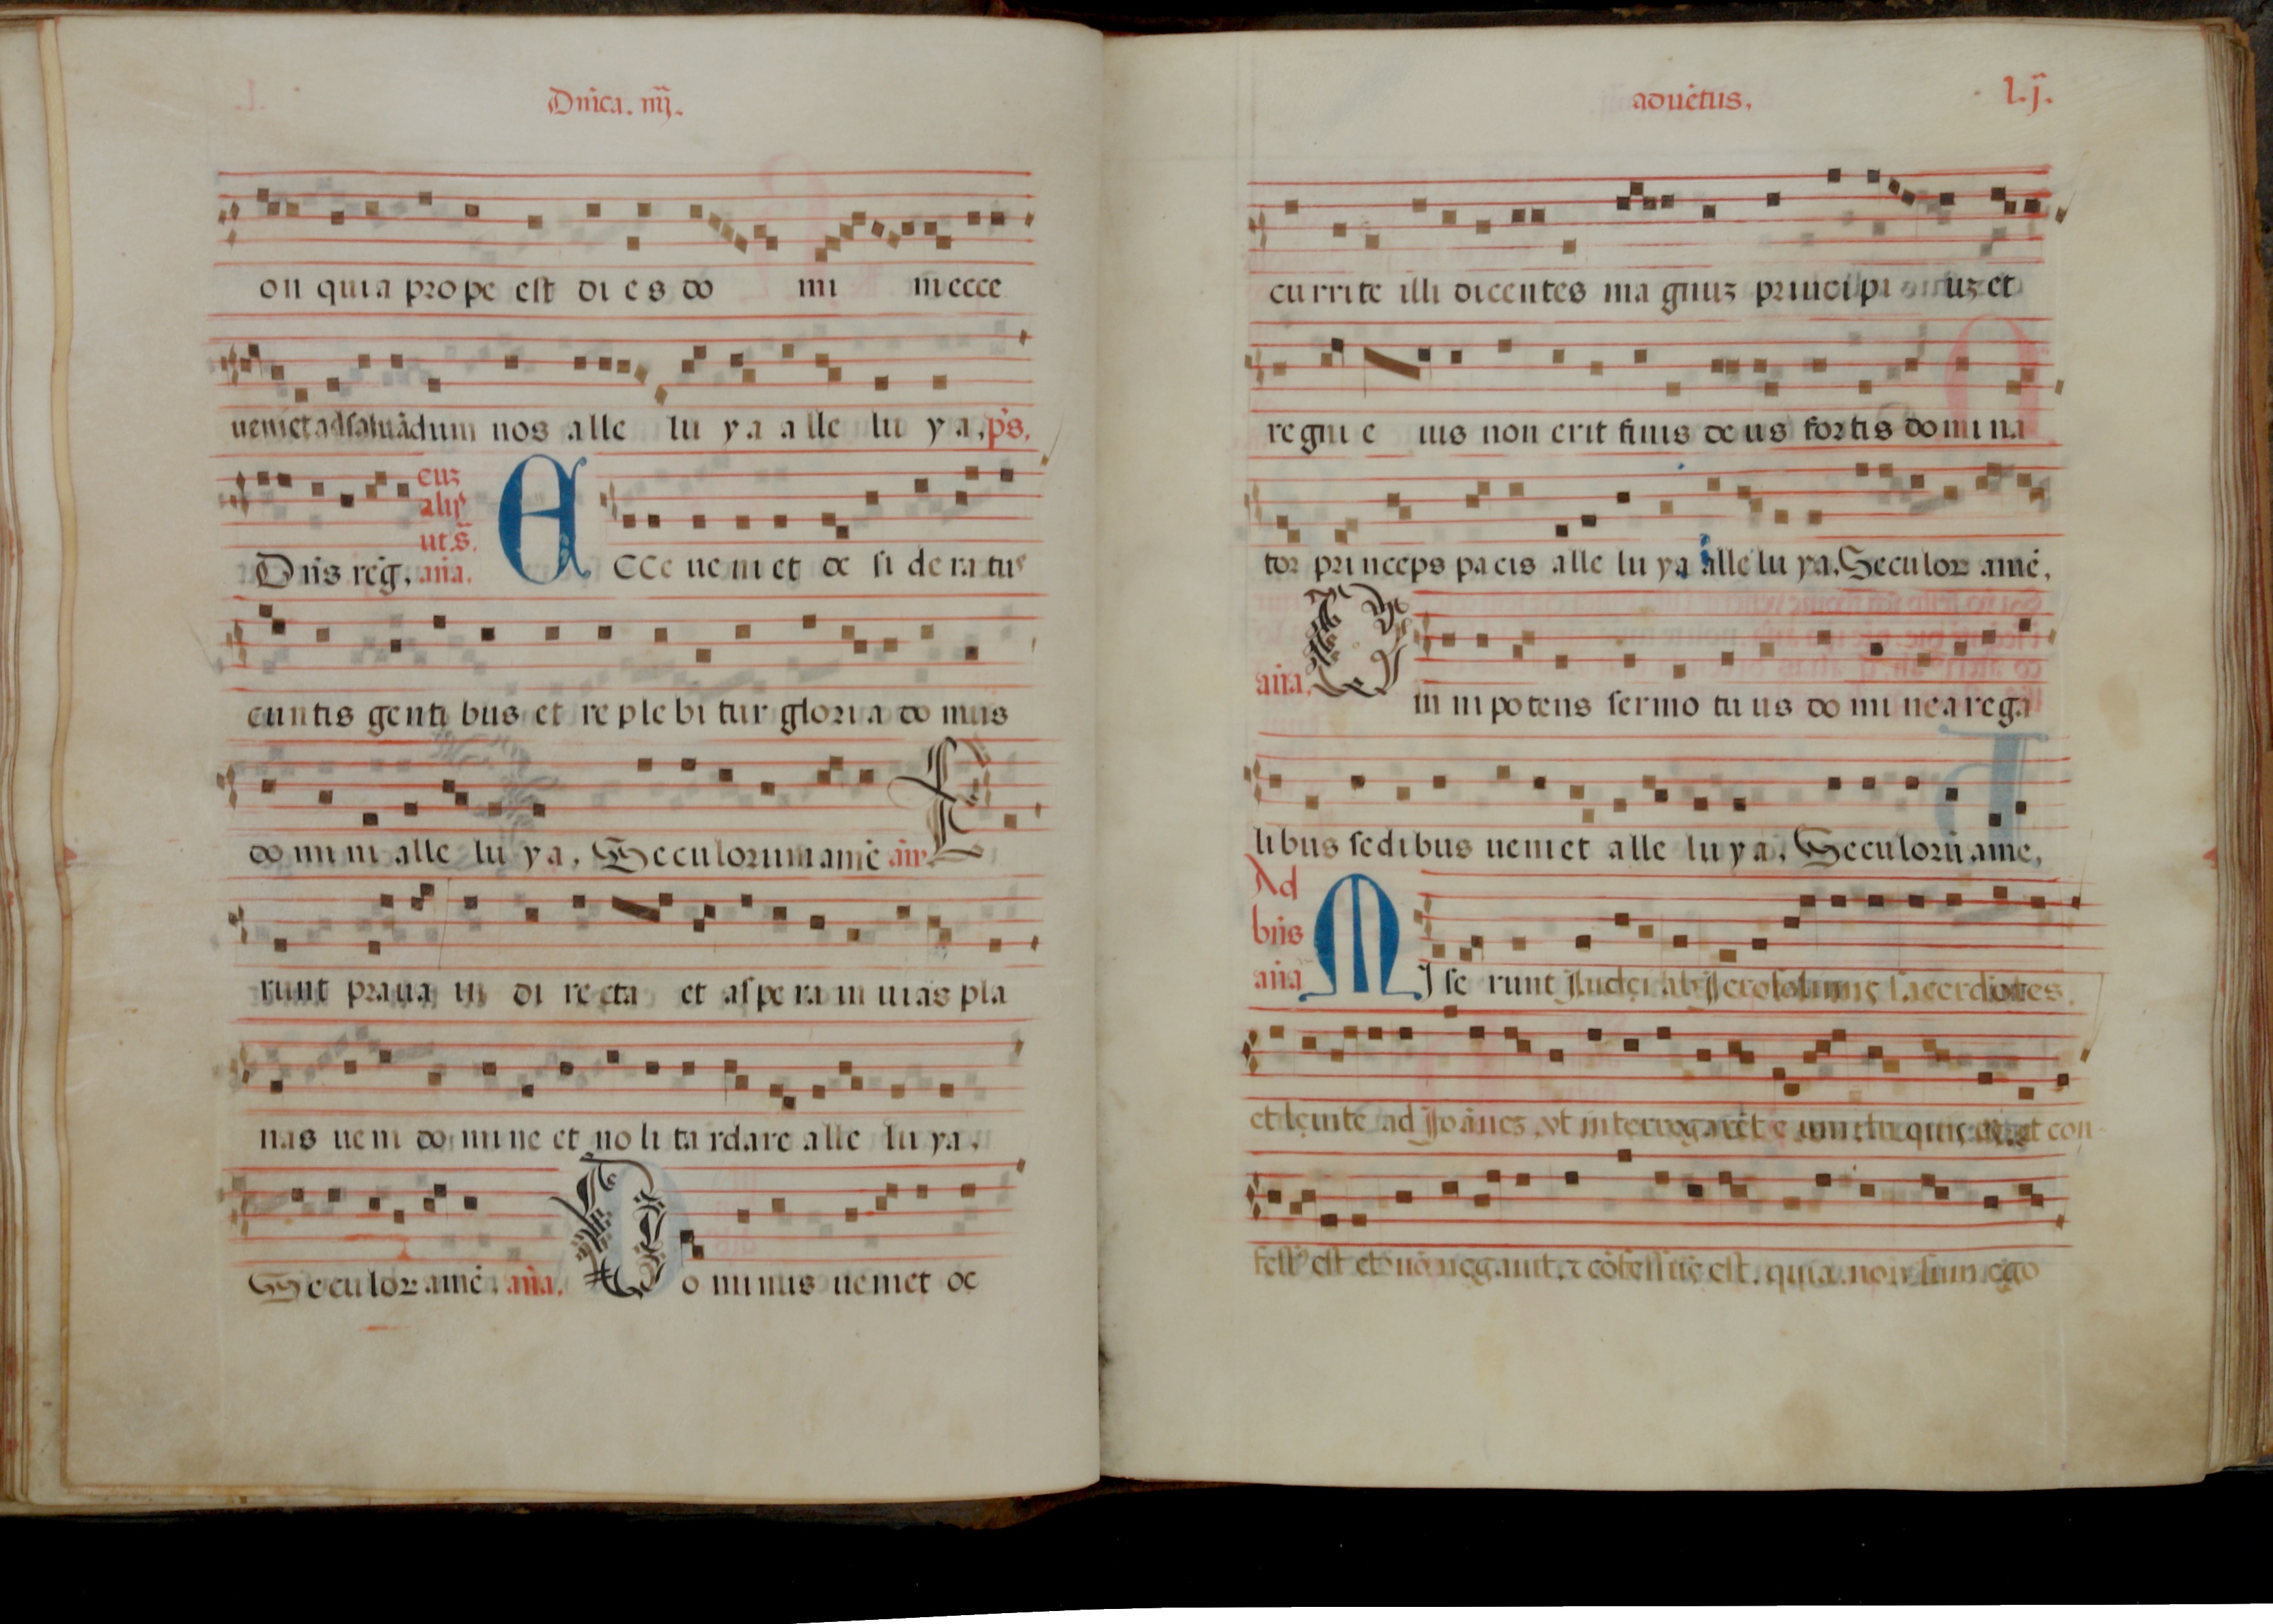 Dnica. iiij.
on quia prope est di e s do mi ni ecce
ueniet ad saluādum nos alle lu ya alle lu ya. p̄s.
Dn̄s reḡ. euz
alijs
ut s̄.
an̄a. ECce ueniet de si de ra tus
cuntis genti bus et re ple bi tur gloria do mus
do mi ni alle lu ya. Seculorum amē an̄
E runt praua in di re cta et aspe ra in uias pla
nas ueni do mi ne et no li ta rdare alle lu ya.
Seculor amē. an̄a. Do minus ueniet oc
aduētus. l.j.
currite illi dicentes ma gnuz principi uz et
regni e ius non erit finis de us fortis do mi na
tor princeps pacis alle lu ya alle lu ya. Seculor amē.
an̄a. Omnipotens sermo tu us do mi ne a rega
libus sedibus ueniet alle lu ya. Seculorū ame.
Ad
bn̄s
an̄a MIse runt Iudei ab Ierosolimis sacerdotes
et leuite ad Joānez vt interrogarēt eum tu quis es et con
fess⁹ est et nō negauit. ⁊ cōfessus est. quia non sum ego